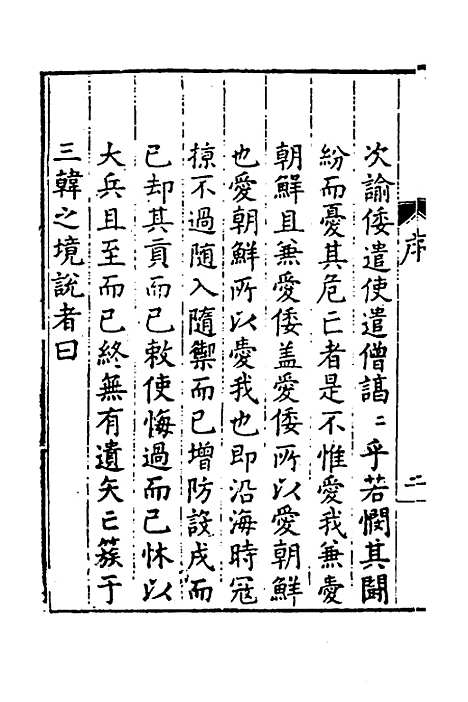 序 二
次諭倭遣使遣僧譪〻乎若憫其鬪
紛而憂其危亡者是不惟愛我兼愛
朝鮮且兼愛倭盖愛倭所以愛朝鮮
也愛朝鮮所以愛我也即沿海時冦
掠不過随入隨禦而已增防設戍而
已却其貢而已敕使悔過而已怵以
大兵且至而已終無有遺矢亡簇于
三韓之境說者曰